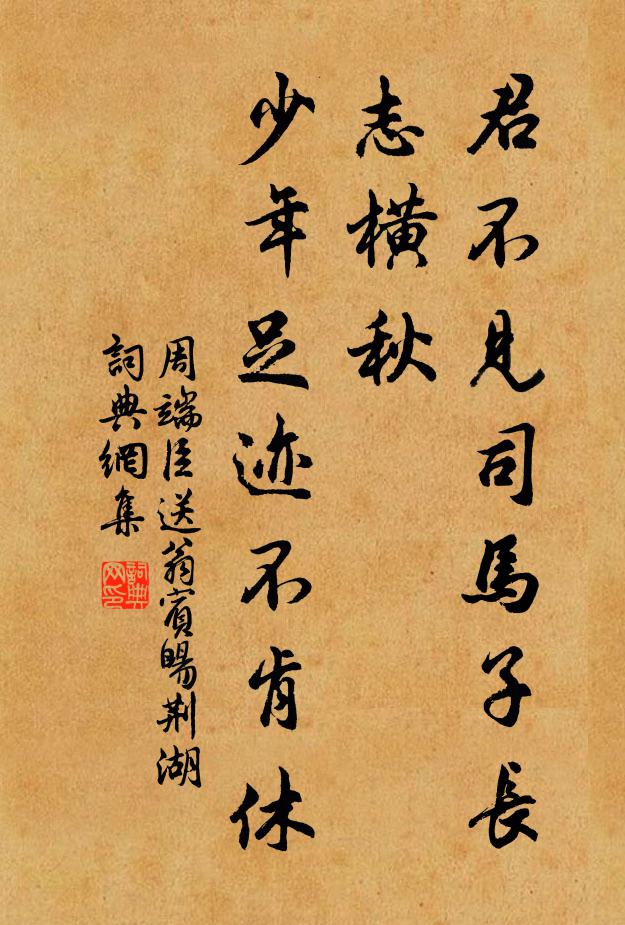 君不見司馬子長
志橫秋
少年足迹不肯休
周端臣送翁賓暘荆湖
詞典網集
詞典
网印